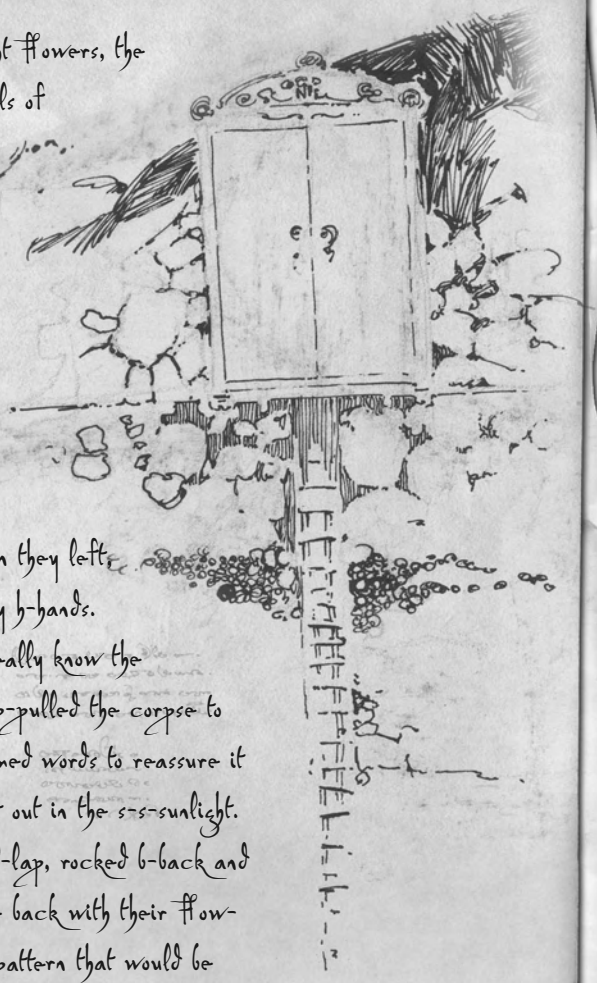 t flowers, the
ls of
n they left,
y h-hands.
eally know the
p-pulled the corpse to
med words to reassure it
r out in the s-s-sunlight.
-lap, rocked b-back and
back with their flow-
pattern that would be